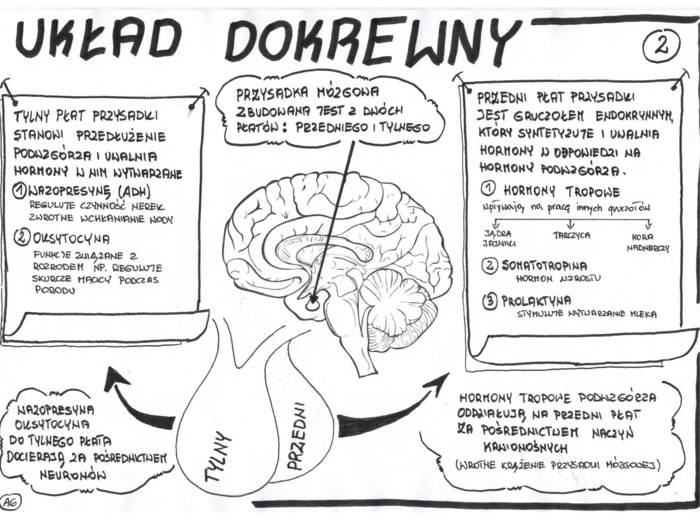 UKŁAD DOKREWNY
2
TYLNY PŁAT PRZYSADKI
STANOWI PRZEDŁUŻENIE
PODWZGÓRZA I UWALNIA
HORMONY W NIM WYTWARZANE
1 WAZOPRESYNĘ (ADH)
REGULUJE CZYNNOŚĆ NEREK
ZWROTNE WCHŁANIANIE WODY
2 OKSYTOCYNA
FUNKCJE ZWIĄZANE Z
ROZRODEM NP. REGULUJE
SKURCZE MACICY PODCZAS
PORODU
PRZYSADKA MÓZGOWA
ZBUDOWANA JEST Z DWÓCH
PŁATÓW: PRZEDNIEGO I TYLNEGO
PRZEDNI PŁAT PRZYSADKI
JEST GRUCZOŁEM ENDOKRYNNYM,
KTÓRY SYNTETYZUJE I UWALNIA
HORMONY W ODPOWIEDZI NA
HORMONY PODWZGÓRZA.
1 HORMONY TROPOWE
wpływają na pracę innych gruczołów
JĄDRA
JAJNIKI
TARCZYCA
KORA
NADNERCZY
2 SOMATOTROPINA
HORMON WZROSTU
3 PROLAKTYNA
STYMULUJE WYTWARZANIE MLEKA
WAZOPRESYNA
OKSYTOCYNA
DO TYLNEGO PŁATA
DOCIERAJĄ ZA POŚREDNICTWEM
NEURONÓW
TYLNY
PRZEDNI
HORMONY TROPOWE PODWZGÓRZA
ODDZIAŁUJĄ NA PRZEDNI PŁAT
ZA POŚREDNICTWEM NACZYŃ
KRWIONOŚNYCH
(WROTNE KRĄŻENIE PRZYSADKI MÓZGOWEJ)
AG